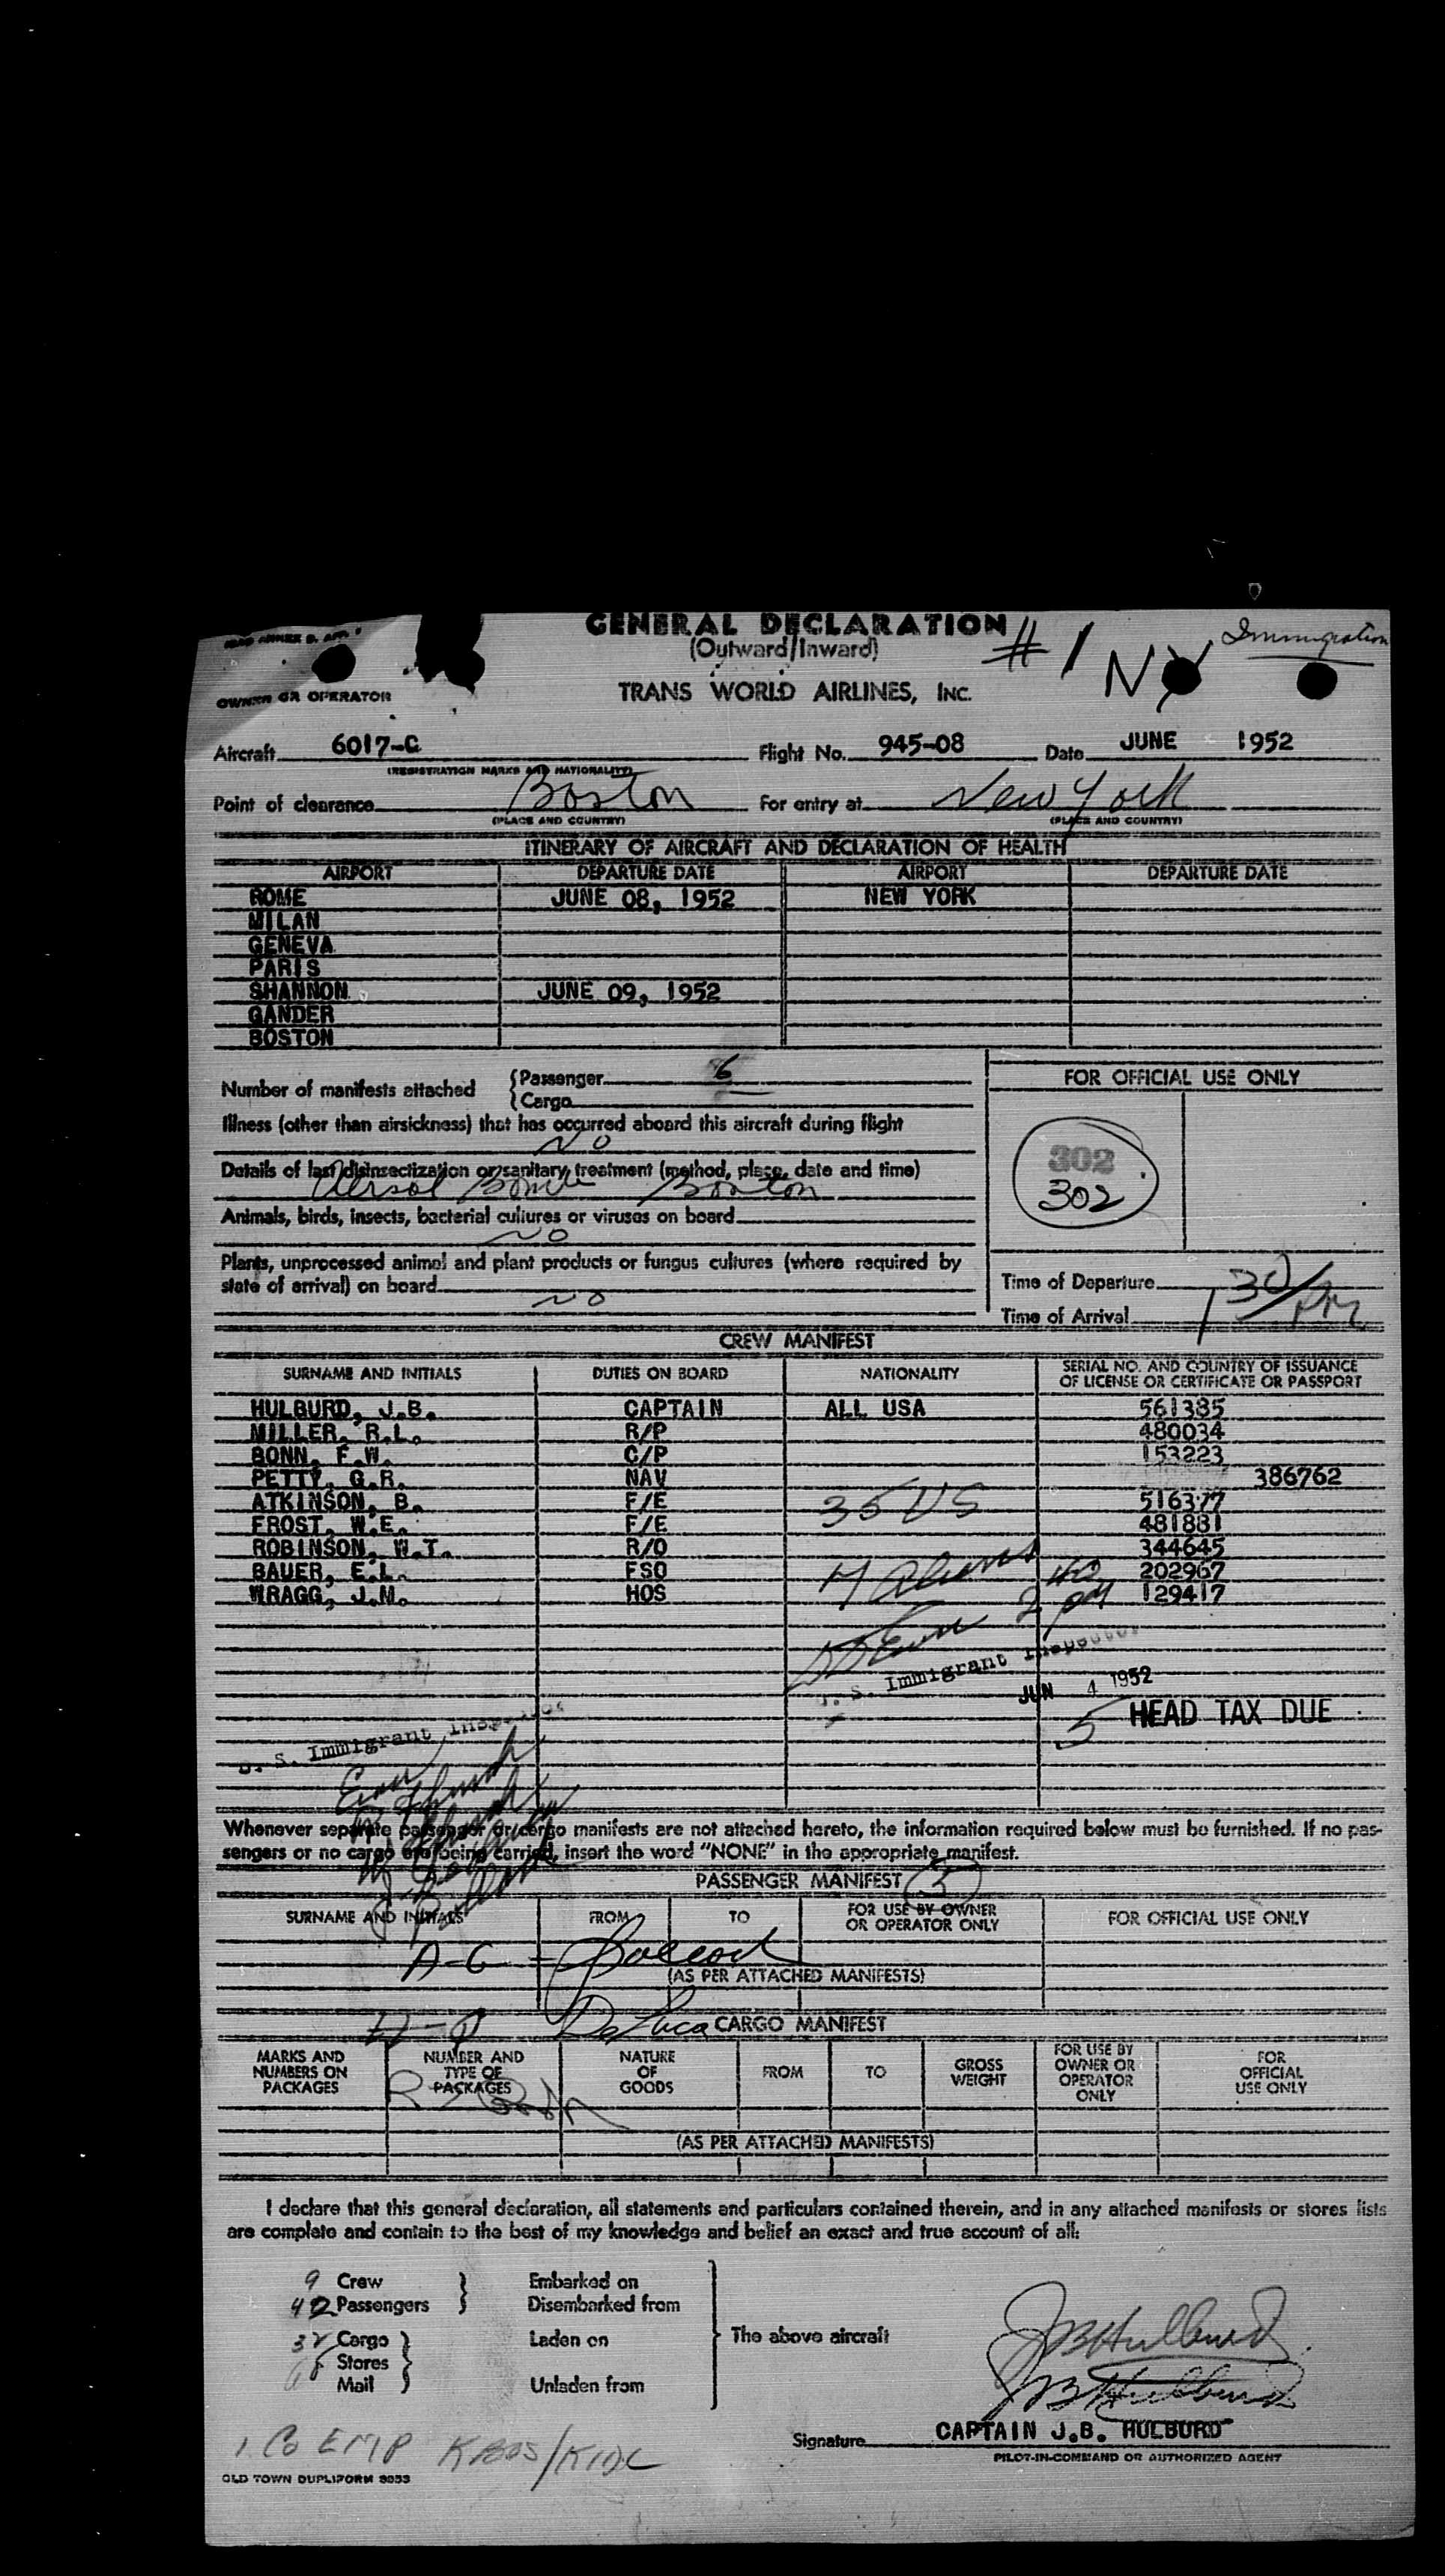 GENERAL DECLARATION
(Outward/Inward)
# 1 NY Immigration
OWNER OR OPERATOR
TRANS WORLD AIRLINES, INC.
Aircraft 6017-C Flight No. 945-08 Date JUNE 1952
(REGISTRATION MARKS AND NATIONALITY)
Point of clearance Boston For entry at New York
(PLACE AND COUNTRY) (PLACE AND COUNTRY)
ITINERARY OF AIRCRAFT AND DECLARATION OF HEALTH
AIRPORT DEPARTURE DATE AIRPORT DEPARTURE DATE
ROME JUNE 08, 1952 NEW YORK
MILAN
GENEVA
PARIS
SHANNON JUNE 09, 1952
GANDER
BOSTON
Number of manifests attached {Passenger 6
{Cargo
FOR OFFICIAL USE ONLY
Illness (other than airsickness) that has occurred aboard this aircraft during flight
NO
302
302
Details of last disinsectization or sanitary treatment (method, place, date and time)
Boston
Animals, birds, insects, bacterial cultures or viruses on board
NO
Plants, unprocessed animal and plant products or fungus cultures (where required by
state of arrival) on board
NO
Time of Departure
Time of Arrival 1 30/PM
CREW MANIFEST
SURNAME AND INITIALS DUTIES ON BOARD NATIONALITY SERIAL NO. AND COUNTRY OF ISSUANCE
OF LICENSE OR CERTIFICATE OR PASSPORT
HULBURD, J.B. CAPTAIN ALL USA 561385
MILLER, R.L. R/P 480034
BONN, F.W. C/P 153223
PETTY, G.R. NAV 386762
ATKINSON, B. F/E 35 US 516377
FROST, W.E. F/E 481881
ROBINSON, W.T. R/O 344645
BAUER, E.L. FSO 202967
WRAGG, J.M. HOS 129417
U. S. Immigrant Inspector
JUN 4 1952
5 HEAD TAX DUE
U. S. Immigrant Inspector
Whenever separate passenger or cargo manifests are not attached hereto, the information required below must be furnished. If no pas-
sengers or no cargo are being carried, insert the word "NONE" in the appropriate manifest.
PASSENGER MANIFEST 5
SURNAME AND INITIALS FROM TO FOR USE BY OWNER
OR OPERATOR ONLY FOR OFFICIAL USE ONLY
A-G
(AS PER ATTACHED MANIFESTS)
De Luca
CARGO MANIFEST
MARKS AND
NUMBERS ON
PACKAGES NUMBER AND
TYPE OF
PACKAGES NATURE
OF
GOODS FROM TO GROSS
WEIGHT FOR USE BY
OWNER OR
OPERATOR
ONLY FOR
OFFICIAL
USE ONLY
(AS PER ATTACHED MANIFESTS)
I declare that this general declaration, all statements and particulars contained therein, and in any attached manifests or stores lists
are complete and contain to the best of my knowledge and belief an exact and true account of all:
9 Crew } Embarked on
42 Passengers } Disembarked from
Cargo } Laden on } The above aircraft
Stores
Mail } Unladen from
JB Hulburd
JB Hulburd
Signature CAPTAIN J.B. HULBURD
PILOT-IN-COMMAND OR AUTHORIZED AGENT
1 Co EMP
OLD TOWN DUPLIFORM 9053